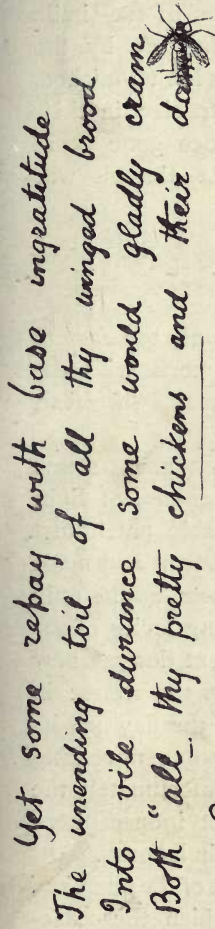 Yet some repay with base ingratitude
The unending toil of all thy winged brood
Into vile durance some would gladly cram
Both "all thy pretty chickens and their dam